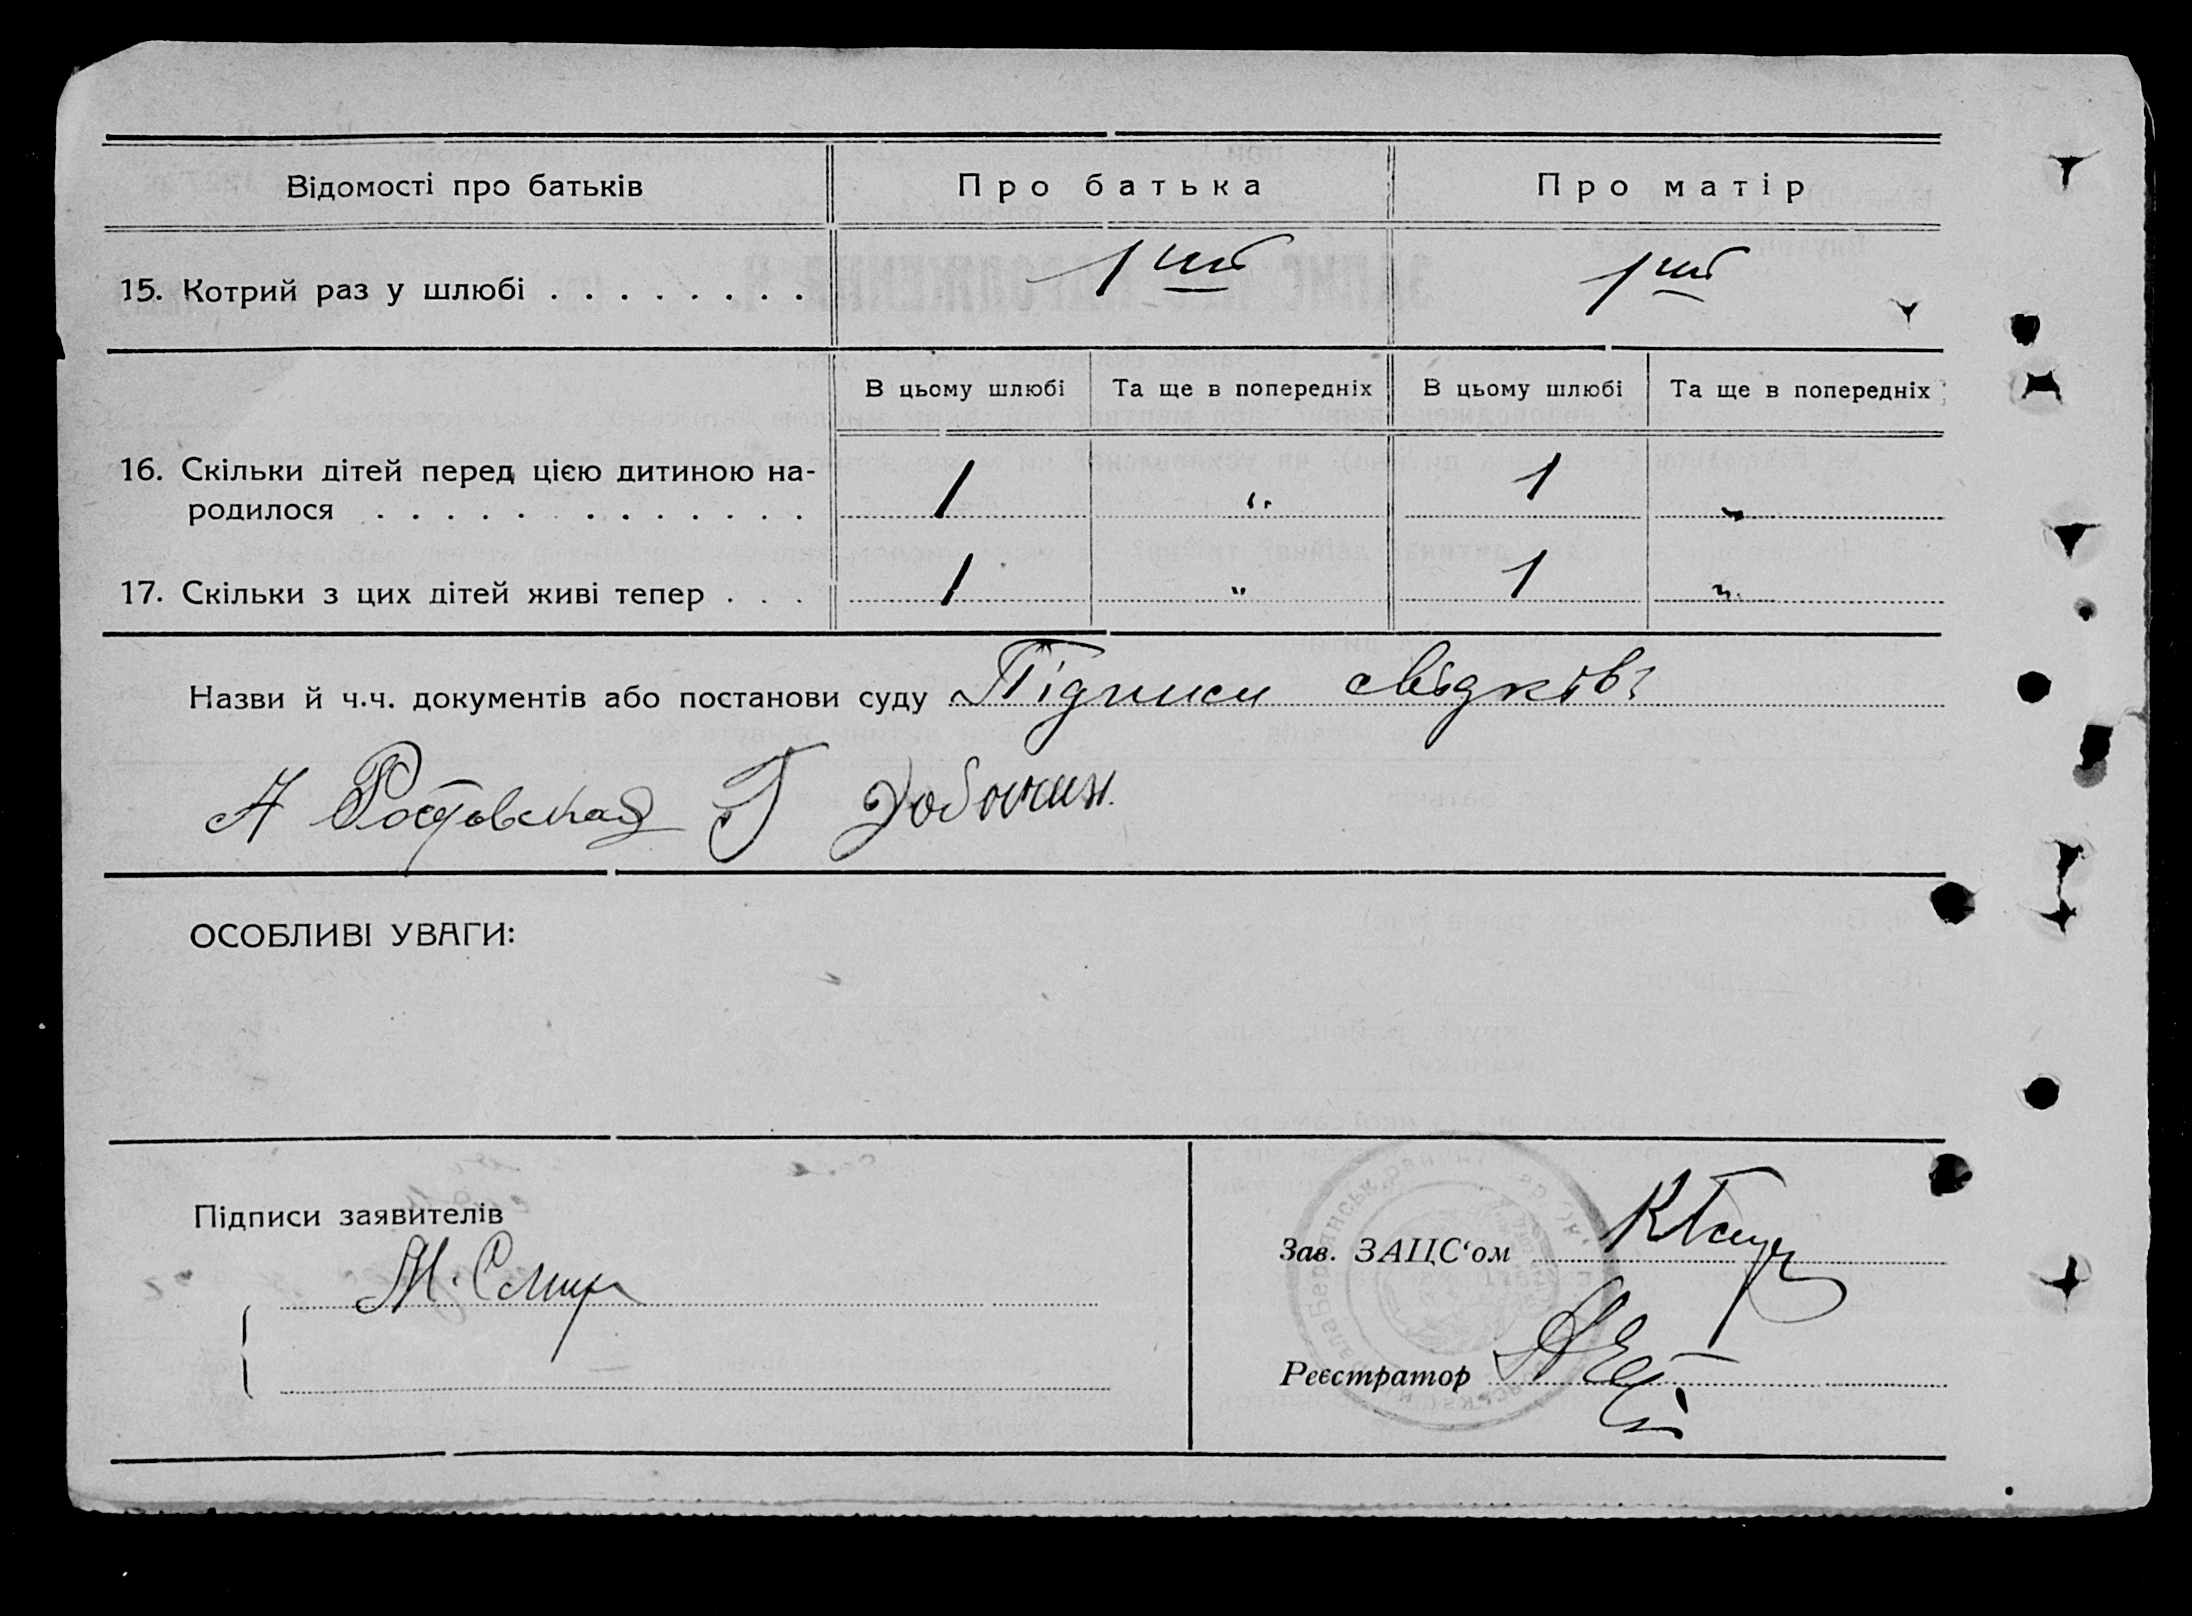 Відомості про батьків
Про батька
Про матір
15. Котрий раз у шлюбі . . . . . . . .
1ий
1ий
В цьому шлюбі
Та ще в попередніх
В цьому шлюбі
Та ще в попередніх
16. Скільки дітей перед цією дитиною на-
родилося . . . . . . . . . . . . .
1 " 1 "
17. Скільки з цих дітей живі тепер . . .
1 " 1 "
Назви й ч.ч. документів або постанови суду Підписи свідків:
А Ростовская Г
ОСОБЛИВІ УВАГИ:
Підписи заявителів
М.
Зав. ЗАЦС'ом
Реєстратор